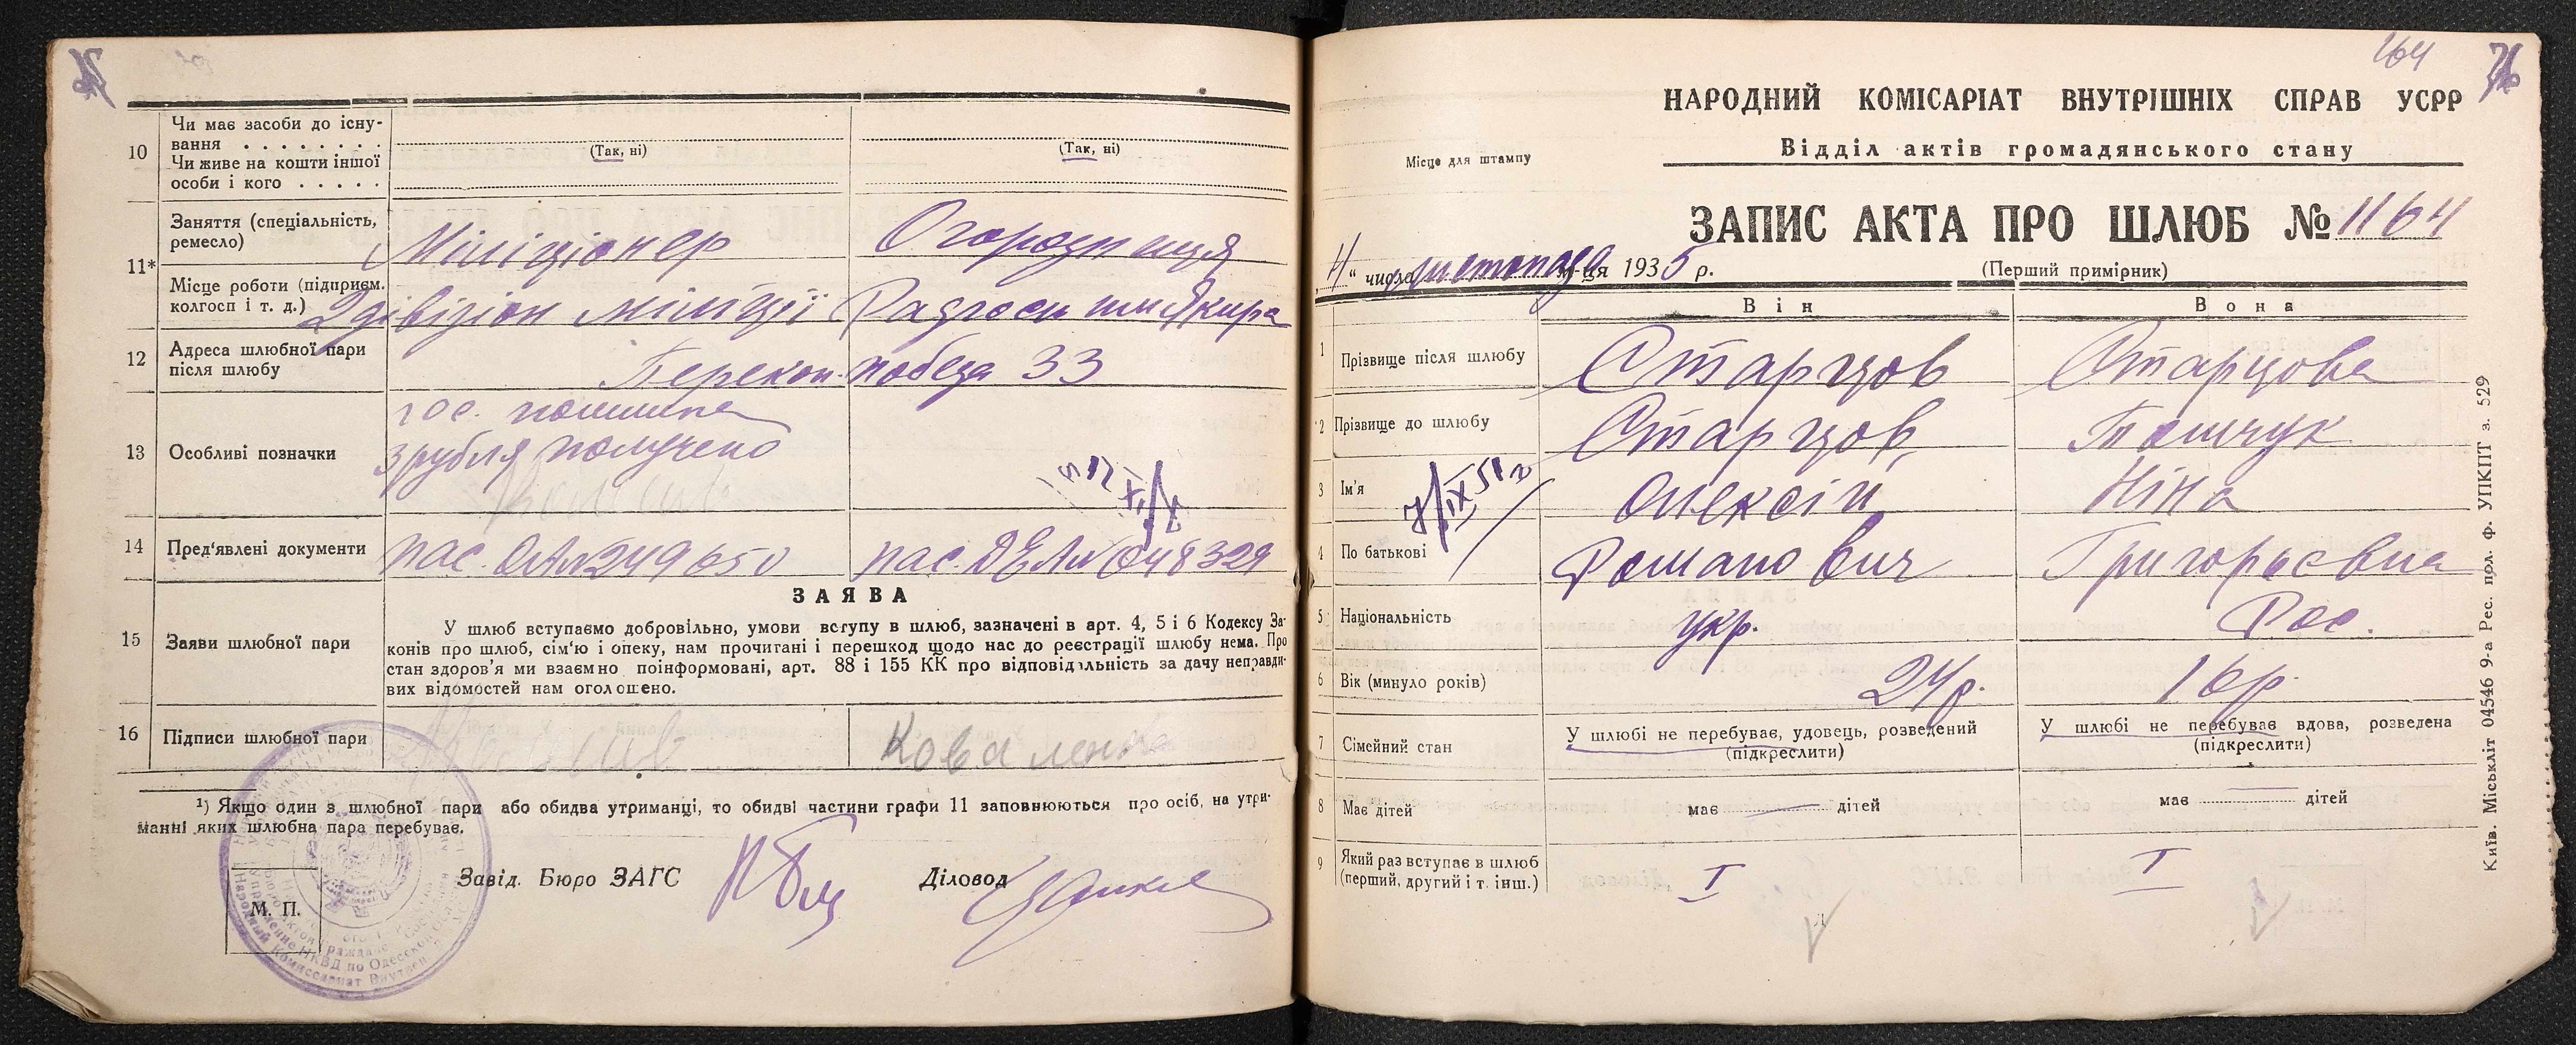 10
Чи має засоби до існу-
вання . . . . . . . .
(Так, ні)
(Так, ні)
Чи живе на кошти іншої
особи і кого . . . . .
11*
Заняття (спеціальність,
ремесло)
Міліціонер
Огородниця
Місце роботи (підприєм.
колгосп і т. д.)
2 дівізіон міліції
Радгосп им Якира
12
Адреса шлюбної пари
після шлюбу
Перекоп. победа 33
13
Особливі позначки
гос. пошлина
3 рубля получено
14
Пред'явлені документи
пас. ОАЛ 249650
пас. ДЕЛ № 048329
15
Заяви шлюбної пари
ЗАЯВА
У шлюб вступаємо добровільно, умови вступу в шлюб, зазначені в арт. 4, 5 і 6 Кодексу За-
конів про шлюб, сім'ю і опеку, нам прочитані і перешкод щодо нас до реєстрації шлюбу нема. Про
стан здоров'я ми взаємно поінформовані, арт. 88 і 155 КК про відповідальність за дачу неправди-
вих відомостей нам оголошено.
16
Підписи шлюбної пари
Коваленко
¹) Якщо один з шлюбної пари або обидва утриманці, то обидві частини графи 11 заповнюються про осіб, на утри-
манні яких шлюбна пара перебуває.
Завід. Бюро ЗАГС
Діловод
М. П.
164
НАРОДНИЙ КОМІСАРІАТ ВНУТРІШНІХ СПРАВ УСРР
Відділ актів громадянського стану
Місце для штампу
ЗАПИС АКТА ПРО ШЛЮБ № 1164
4 " числа листопада м-ця 1935 р.
(Перший примірник)
Він
Вона
1
Прізвище після шлюбу
Старцов
Старцова
2
Прізвище до шлюбу
Старцов
3
Ім'я
Олексій
Ніна
4
По батькові
Романович
Григорьевна
5
Національність
укр.
Рос.
6
Вік (минуло років)
24 р.
16 р.
7
Сімейний стан
У шлюбі не перебуває, удовець, розведений
(підкреслити)
У шлюбі не перебуває вдова, розведена
(підкреслити)
8
Має дітей
має — дітей
має — дітей
9
Який раз вступає в шлюб
(перший, другий і т. інш.)
I
I
Київ. Міськліт 04546 9-а Рес. пол. ф. УПКПТ з. 529